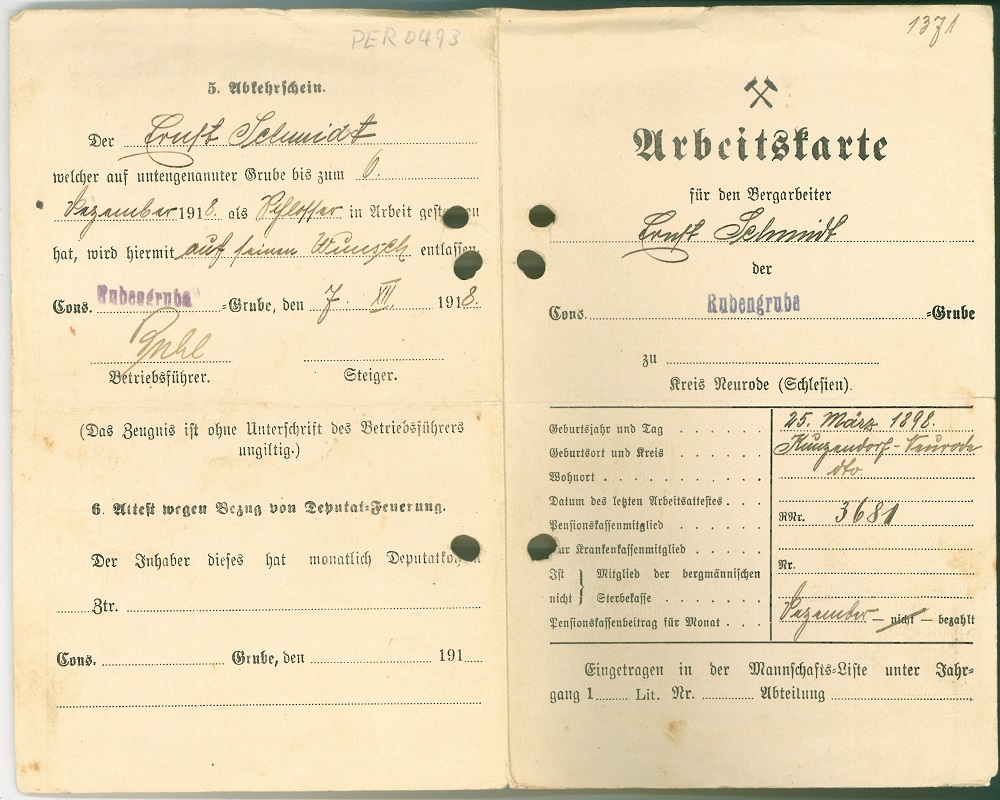 PER 0493
5. Abkehrschein.
Der Ernst Schmidt
welcher auf untengenannter Grube bis zum 6.
Dezember 1918. als Schlosser in Arbeit gest en
hat, wird hiermit auf seinen Wunsch entlassen
Cons. Rubengrube -Grube, den 7. XII. 1918.
Betriebsführer. Steiger.
(Das Zeugnis ist ohne Unterschrift des Betriebsführers
ungiltig.)
6. Attest wegen Bezug von Deputat-Feuerung.
Der Inhaber dieses hat monatlich Deputatko
Ztr.
Cons. Grube, den 191
1371
Arbeitskarte
für den Bergarbeiter
Ernst Schmidt
der
Cons. Rubengrube -Grube
zu
Kreis Neurode (Schlesien).
Geburtsjahr und Tag 25. März 1898.
Geburtsort und Kreis Kunzendorf - Neurode
Wohnort dto.
Datum des letzten Arbeitsattestes
Pensionskassenmitglied RNr. 3681
ur Krankenkassenmitglied
Ist } Mitglied der bergmännischen Nr.
nicht } Sterbekasse
Pensionskassenbeitrag für Monat Dezember — nicht — bezahlt
Eingetragen in der Mannschafts-Liste unter Jahr-
gang 1 Lit. Nr. Abteilung